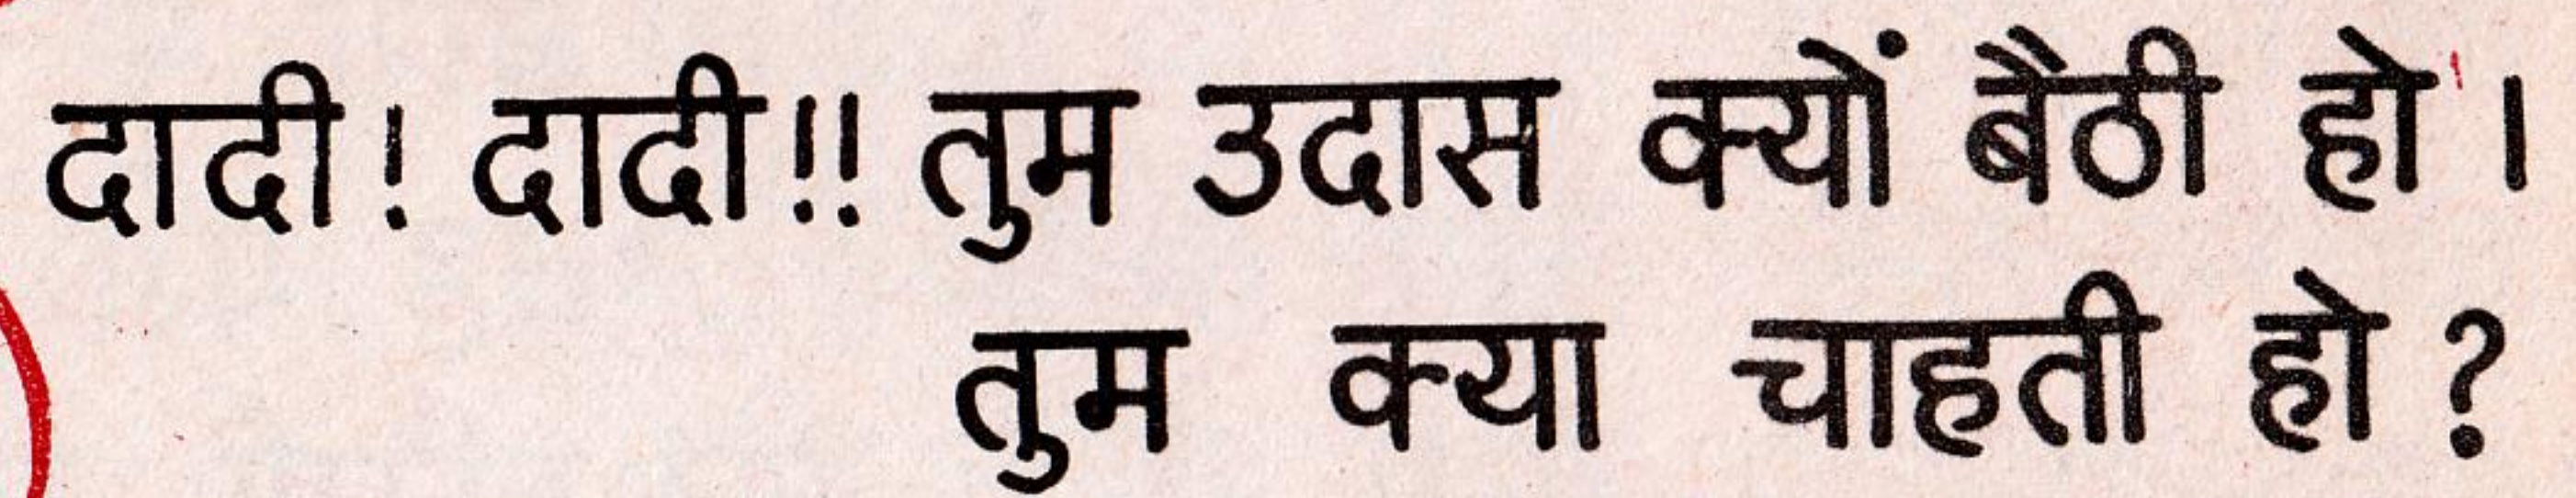 दादी! दादी!! तुम उदास क्यों बैठी हो।
तुम क्या चाहती हो?